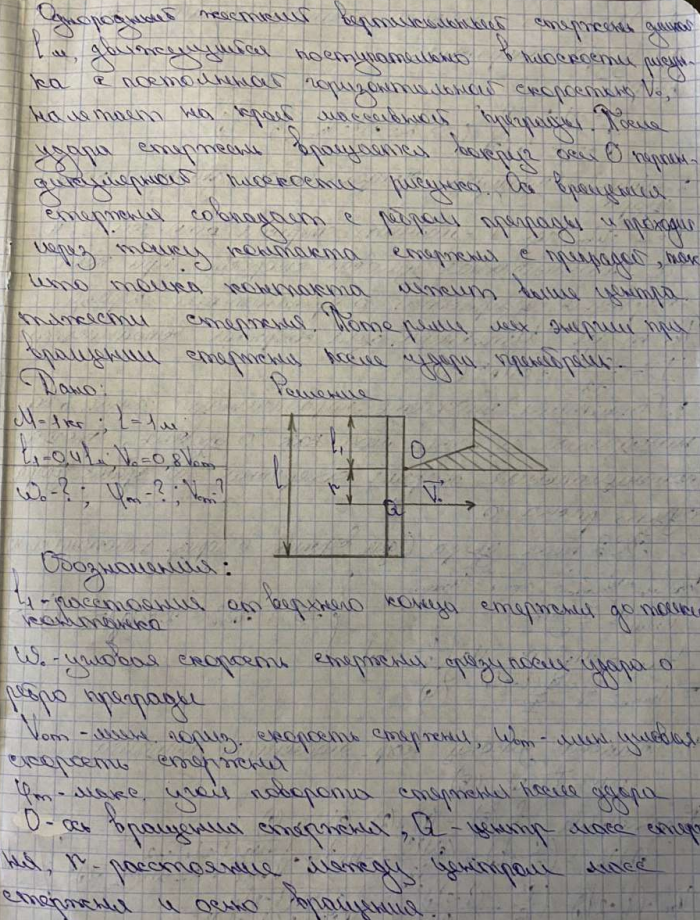 Однородный жесткий вертикальный стержень длиной
l м, движущийся поступательно в плоскости рисун-
ка с постоянной горизонтальной скоростью V₀,
налетает на край массивной преграды. После
удара стержень вращается вокруг оси O перпен-
дикулярной плоскости рисунка. Ось вращения
стержня совпадает с ребром преграды и проходит
через точку контакта стержня с преградой, так
что точка контакта лежит выше центра
тяжести стержня. Потерями мех. энергии при
вращении стержня после удара пренебречь.
Дано: Решение
M=1кг ; l=1м;
l₁=0,4l м; V₀=0,8V₀m
ω₀-?; φm-?; V₀m-?
l
l₁
r
O
V₀
Q
Обозначения:
l₁-расстояния от верхнего конца стержня до точки
контакта
ω₀-угловая скорость стержня сразу после удара о
ребро преграды
V₀m-мин. гориз. скорость стержня, ω₀m-мин. угловая
скорость стержня
φm-макс. угол поворота стержня после удара
O-ось вращения стержня, Q-центр масс стерж
ня, r-расстояние между центром масс
стержня и осью вращения